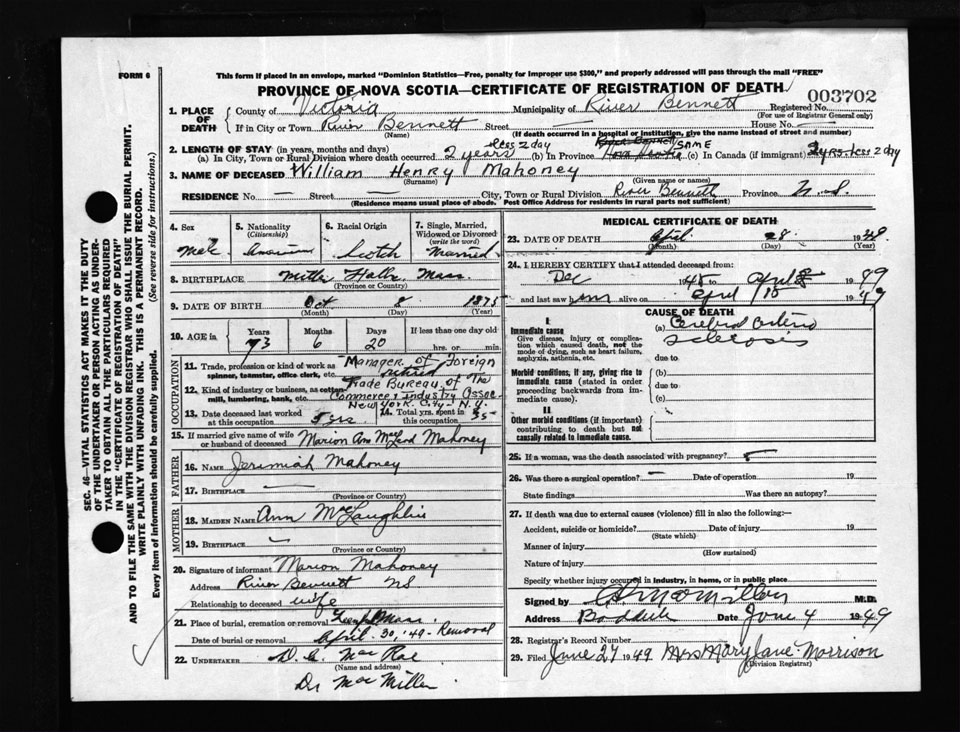 FORM 6
This form if placed in an envelope, marked "Dominion Statistics—Free, penalty for improper use $300," and properly addressed will pass through the mail "FREE"
PROVINCE OF NOVA SCOTIA—CERTIFICATE OF REGISTRATION OF DEATH
003702
1. PLACE OF DEATH
County of Victoria Municipality of River Bennett Registered No.
(For use of Registrar General only)
If in City or Town River Bennett Street — House No. —
(Name) (If death occurred in a hospital or institution, give the name instead of street and number)
2. LENGTH OF STAY (in years, months and days)
(a) In City, Town or Rural Division where death occurred 2 years less 2 day (b) In Province Nova Scotia same (c) In Canada (if immigrant) 2 yrs. less 2 day
3. NAME OF DECEASED William Henry Mahoney
(Surname) (Given name or names)
RESIDENCE No — Street — City, Town or Rural Division River Bennett Province N. S.
(Residence means usual place of abode. Post Office Address for residents in rural parts not sufficient)
4. Sex
Male
5. Nationality
(Citizenship)
American
6. Racial Origin
Scotch
7. Single, Married, Widowed or Divorced
(write the word)
Married
8. BIRTHPLACE Falls, Mass.
(Province or Country)
9. DATE OF BIRTH Oct 8 1875
(Month) (Day) (Year)
10. AGE in
Years Months Days If less than one day old
73 6 20 hrs. or min.
OCCUPATION
11. Trade, profession or kind of work as spinner, teamster, office clerk, etc. Manager of Foreign
retired
12. Kind of industry or business, as cotton mill, lumbering, bank, etc. Trade Bureau of The
Commerce & Industry Assoc
New York City - N.Y.
13. Date deceased last worked at this occupation 5 yrs.
14. Total yrs. spent in 35
15. If married give name of wife or husband of deceased Marion Ann McLeod Mahoney
FATHER
16. NAME Jerimiah Mahoney
17. BIRTHPLACE —
(Province or Country)
MOTHER
18. MAIDEN NAME Ann McLaughlin
19. BIRTHPLACE —
(Province or Country)
20. Signature of informant Marion Mahoney
Address River Bennett NS
Relationship to deceased wife
21. Place of burial, cremation or removal Mass
Date of burial or removal April 30, '49 - Removal
22. UNDERTAKER D. MacRae
(Name and address)
Dr MacMillan
MEDICAL CERTIFICATE OF DEATH
23. DATE OF DEATH April 28 19
(Month) (Day) (Year)
24. I HEREBY CERTIFY that I attended deceased from:
Dec 1948 to April 28 1949
and last saw him alive on April 15 1949
CAUSE OF DEATH
I
Immediate cause
Give disease, injury or complication which caused death, not the mode of dying, such as heart failure, asphyxia, asthenia, etc.
(a) Cerebral arterio
sclerosis
due to
Morbid conditions, if any, giving rise to immediate cause (stated in order preceeding backwards from immediate cause).
(b)
due to
(c)
II
Other morbid conditions (if important) contributing to death but not causally related to immediate cause.
25. If a woman, was the death associated with pregnancy?
26. Was there a surgical operation? — Date of operation 19
State findings Was there an autopsy?
27. If death was due to external causes (violence) fill in also the following:—
Accident, suicide or homicide? Date of injury 19
(State which)
Manner of injury
(How sustained)
Nature of injury
Specify whether injury occurred in industry, in home, or in public place
Signed by McMillan M.D.
Address Baddeck Date June 4 1949
28. Registrar's Record Number
29. Filed June 27 1949 Mrs Mary Jane Morrison
(Division Registrar)
SEC. 46—VITAL STATISTICS ACT MAKES IT THE DUTY
OF THE UNDERTAKER OR PERSON ACTING AS UNDER-
TAKER TO OBTAIN ALL THE PARTICULARS REQUIRED
IN THE "CERTIFICATE OF REGISTRATION OF DEATH"
AND TO FILE THE SAME WITH THE DIVISION REGISTRAR WHO SHALL ISSUE THE BURIAL PERMIT.
WRITE PLAINLY WITH UNFADING INK. THIS IS A PERMANENT RECORD.
Every item of information should be carefully supplied. (See reverse side for instructions.)